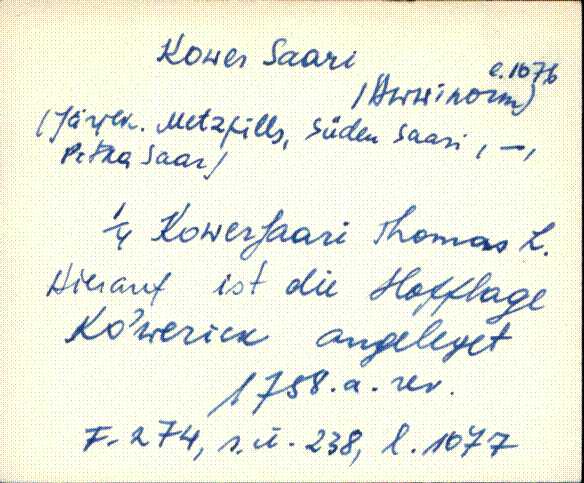 Kower Saari
l. 1076
(Awwinorm)
(Järgen. Metzfills, Süden Saari, —,
Petka Saar)
1/4 Kowersaari Thomas L.
Hierauf ist die Hofflage
Ko'werick angeleget
1758. a. rev.
F. 274, s. ü. 238, l. 1077